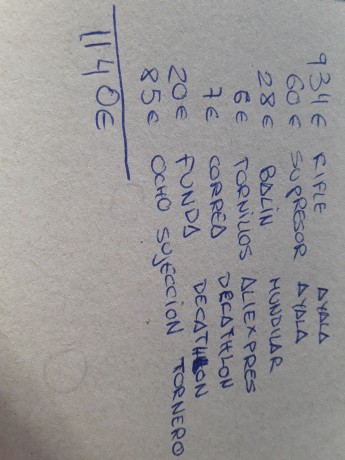 934€ RIFLE AYALA
60€ SUPRESOR AYALA
28€ BALIN MUNDILAR
6€ TORNILLOS ALIEXPRES
7€ CORREA DECATHLON
20€ FUNDA DECATHLON
85€ OCHO SUJECCION TORNERO
1140€